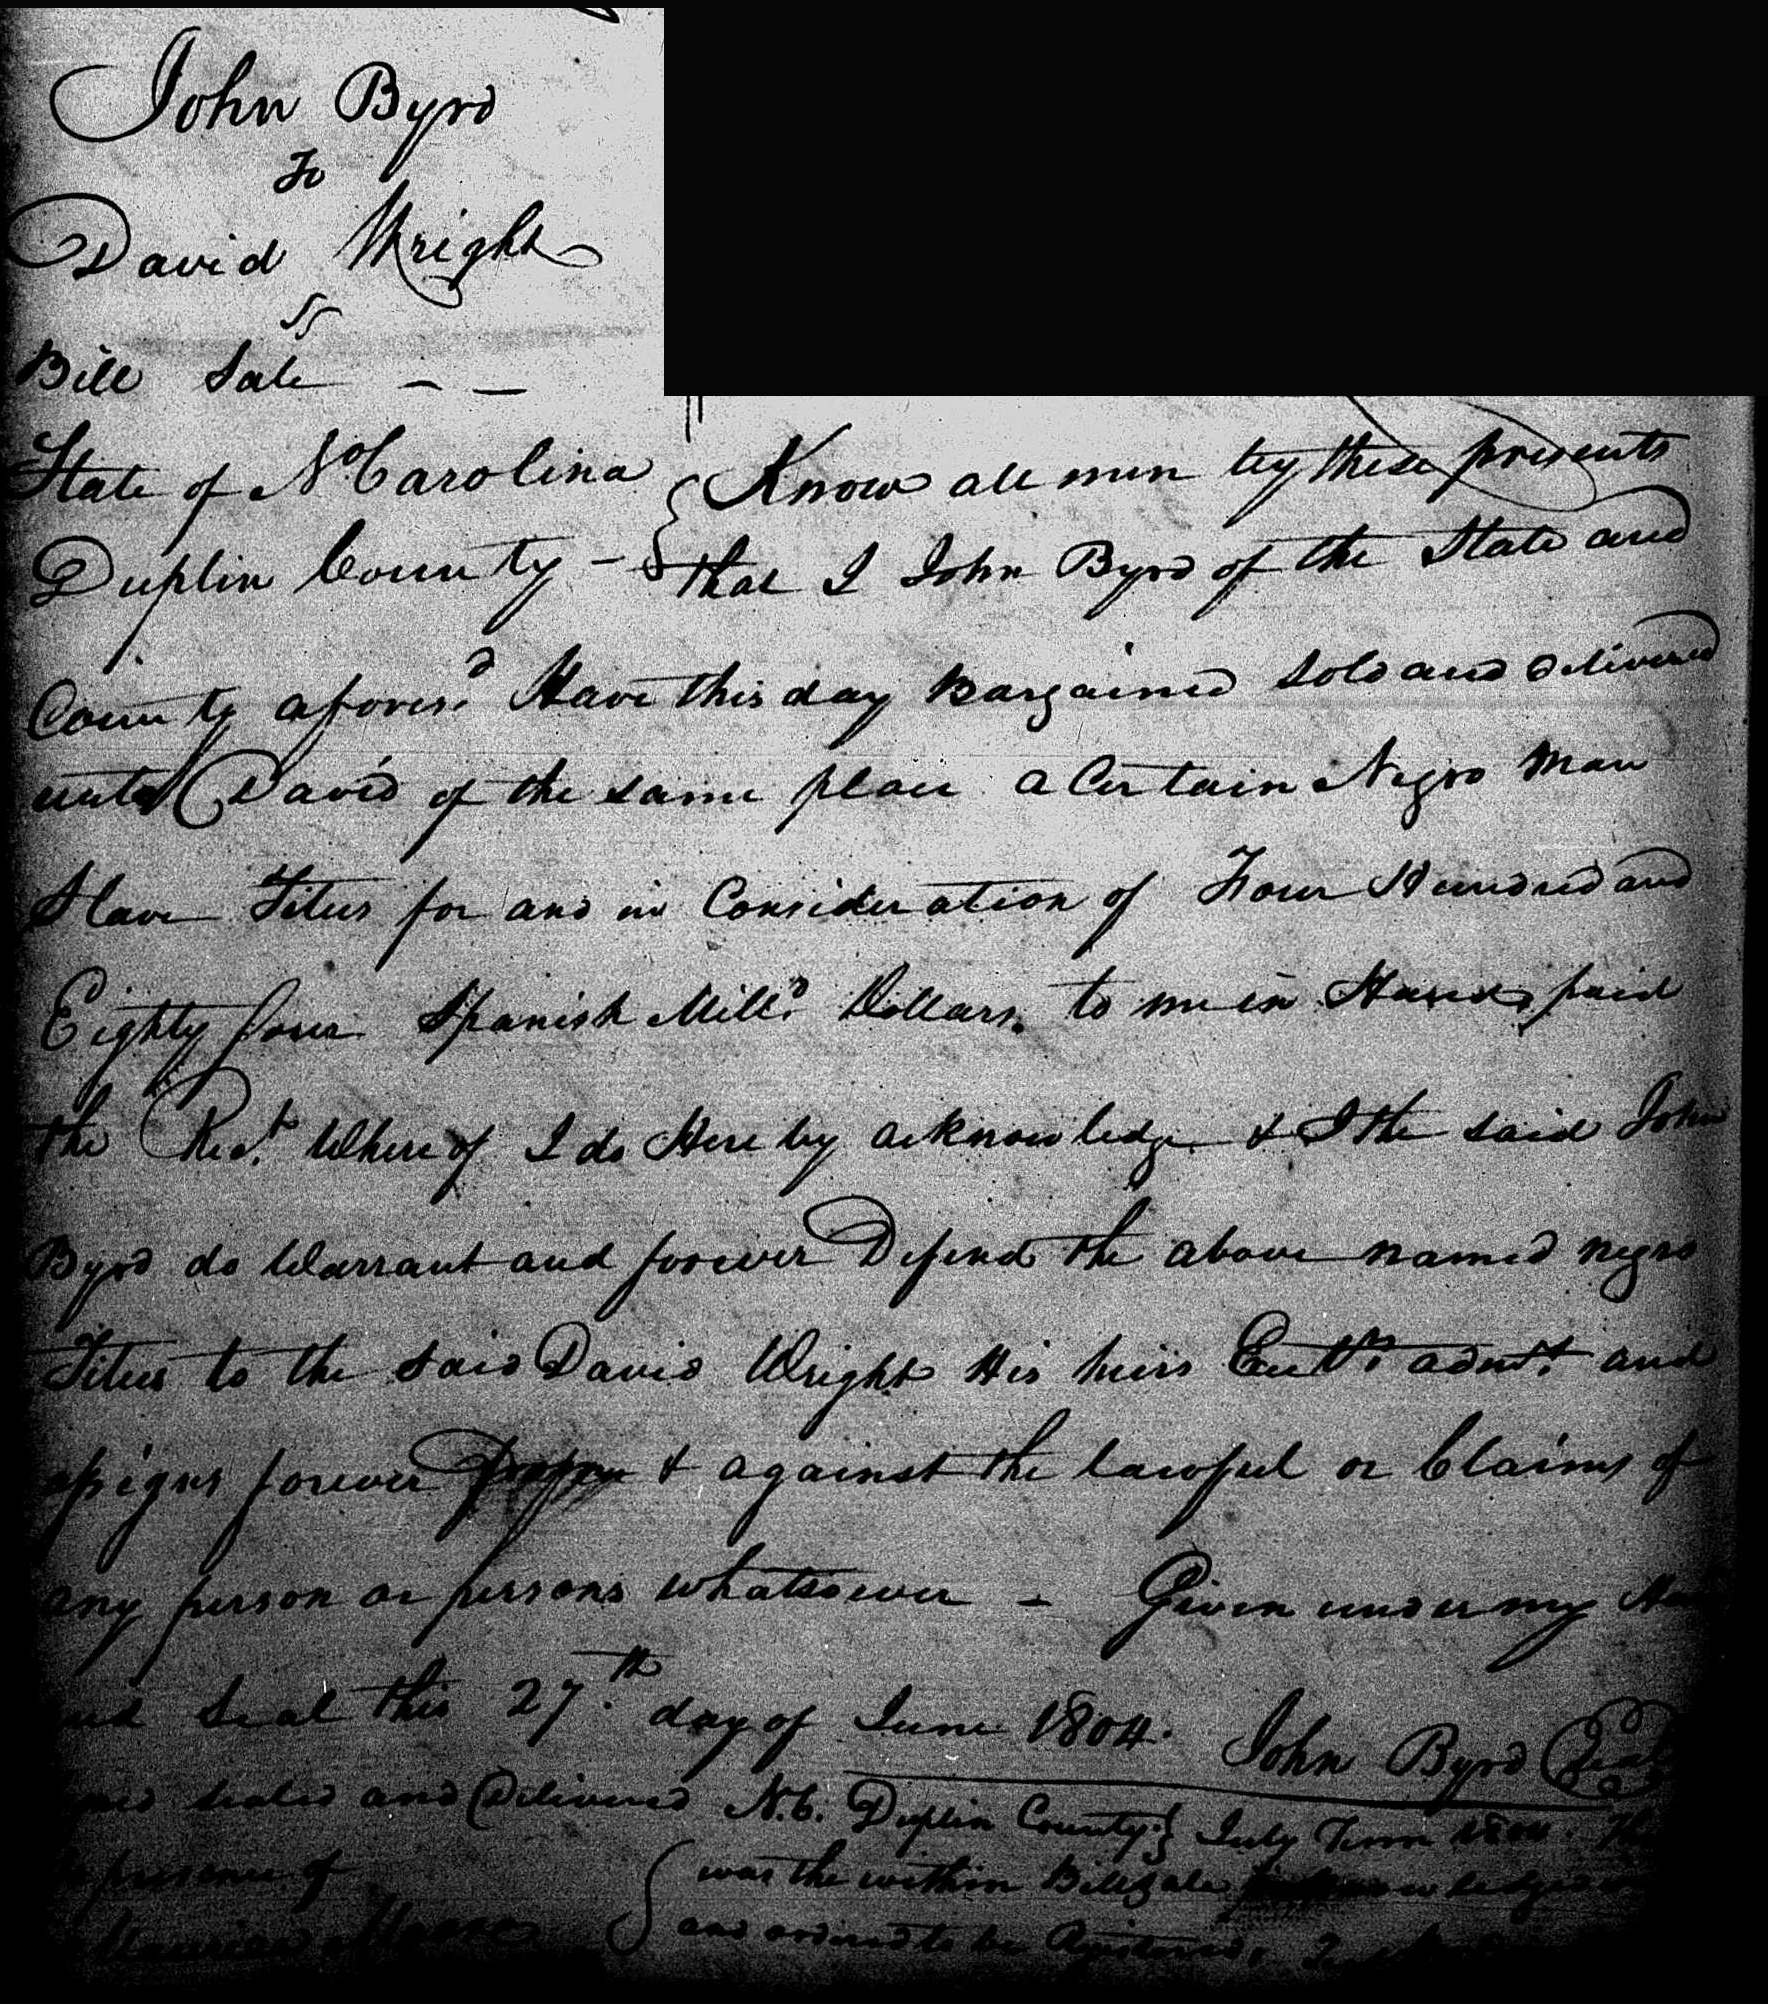 John Byrd
To
David Wright
Bill Sale - -
State of No Carolina } Know all men by these presents
Duplin County - } that I John Byrd of the State and
County aforesd. Have this day Bargained Sold and Delivered
unto David of the same place a Certain Negro Man
Slave Titus for and in Consideration of Four Hundred and
Eighty four Spanish Milld. Dollars. to me in Hand paid
the Rect. Whereof I do Here by acknowledge & I the said John
Byrd do Warrant and forever Defend the above named negro
Titus to the said David Wright His heirs admt. and
assigns forever & against the lawful or Claims of
any person or persons whatsoever - Given under my
and Seal this 27.th day of June 1804. John Byrd Seal
sealed and Delivered N.C. Duplin County } July Term 1804.
presence of { was the within Bill Sale
Moore and ordered to be Registered,